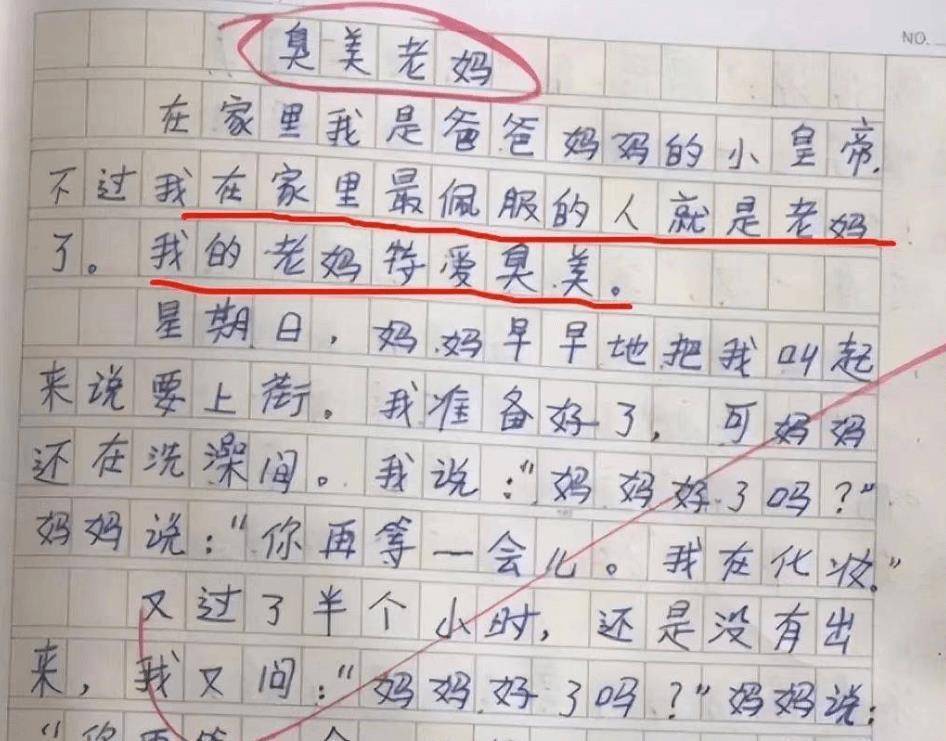 NO.
臭美老妈
在家里我是爸爸妈妈的小皇帝.
不过我在家里最佩服的人就是老妈
了。我的老妈特爱臭美。
星期日,妈妈早早地把我叫起
来说要上街。我准备好了,可妈妈
还在洗澡间。我说:“妈妈好了吗?”
妈妈说:“你再等一会儿。我在化妆。”
又过了半个小时,还是没有出
来,我又问:“妈妈好了吗?”妈妈说:
“你再等一会